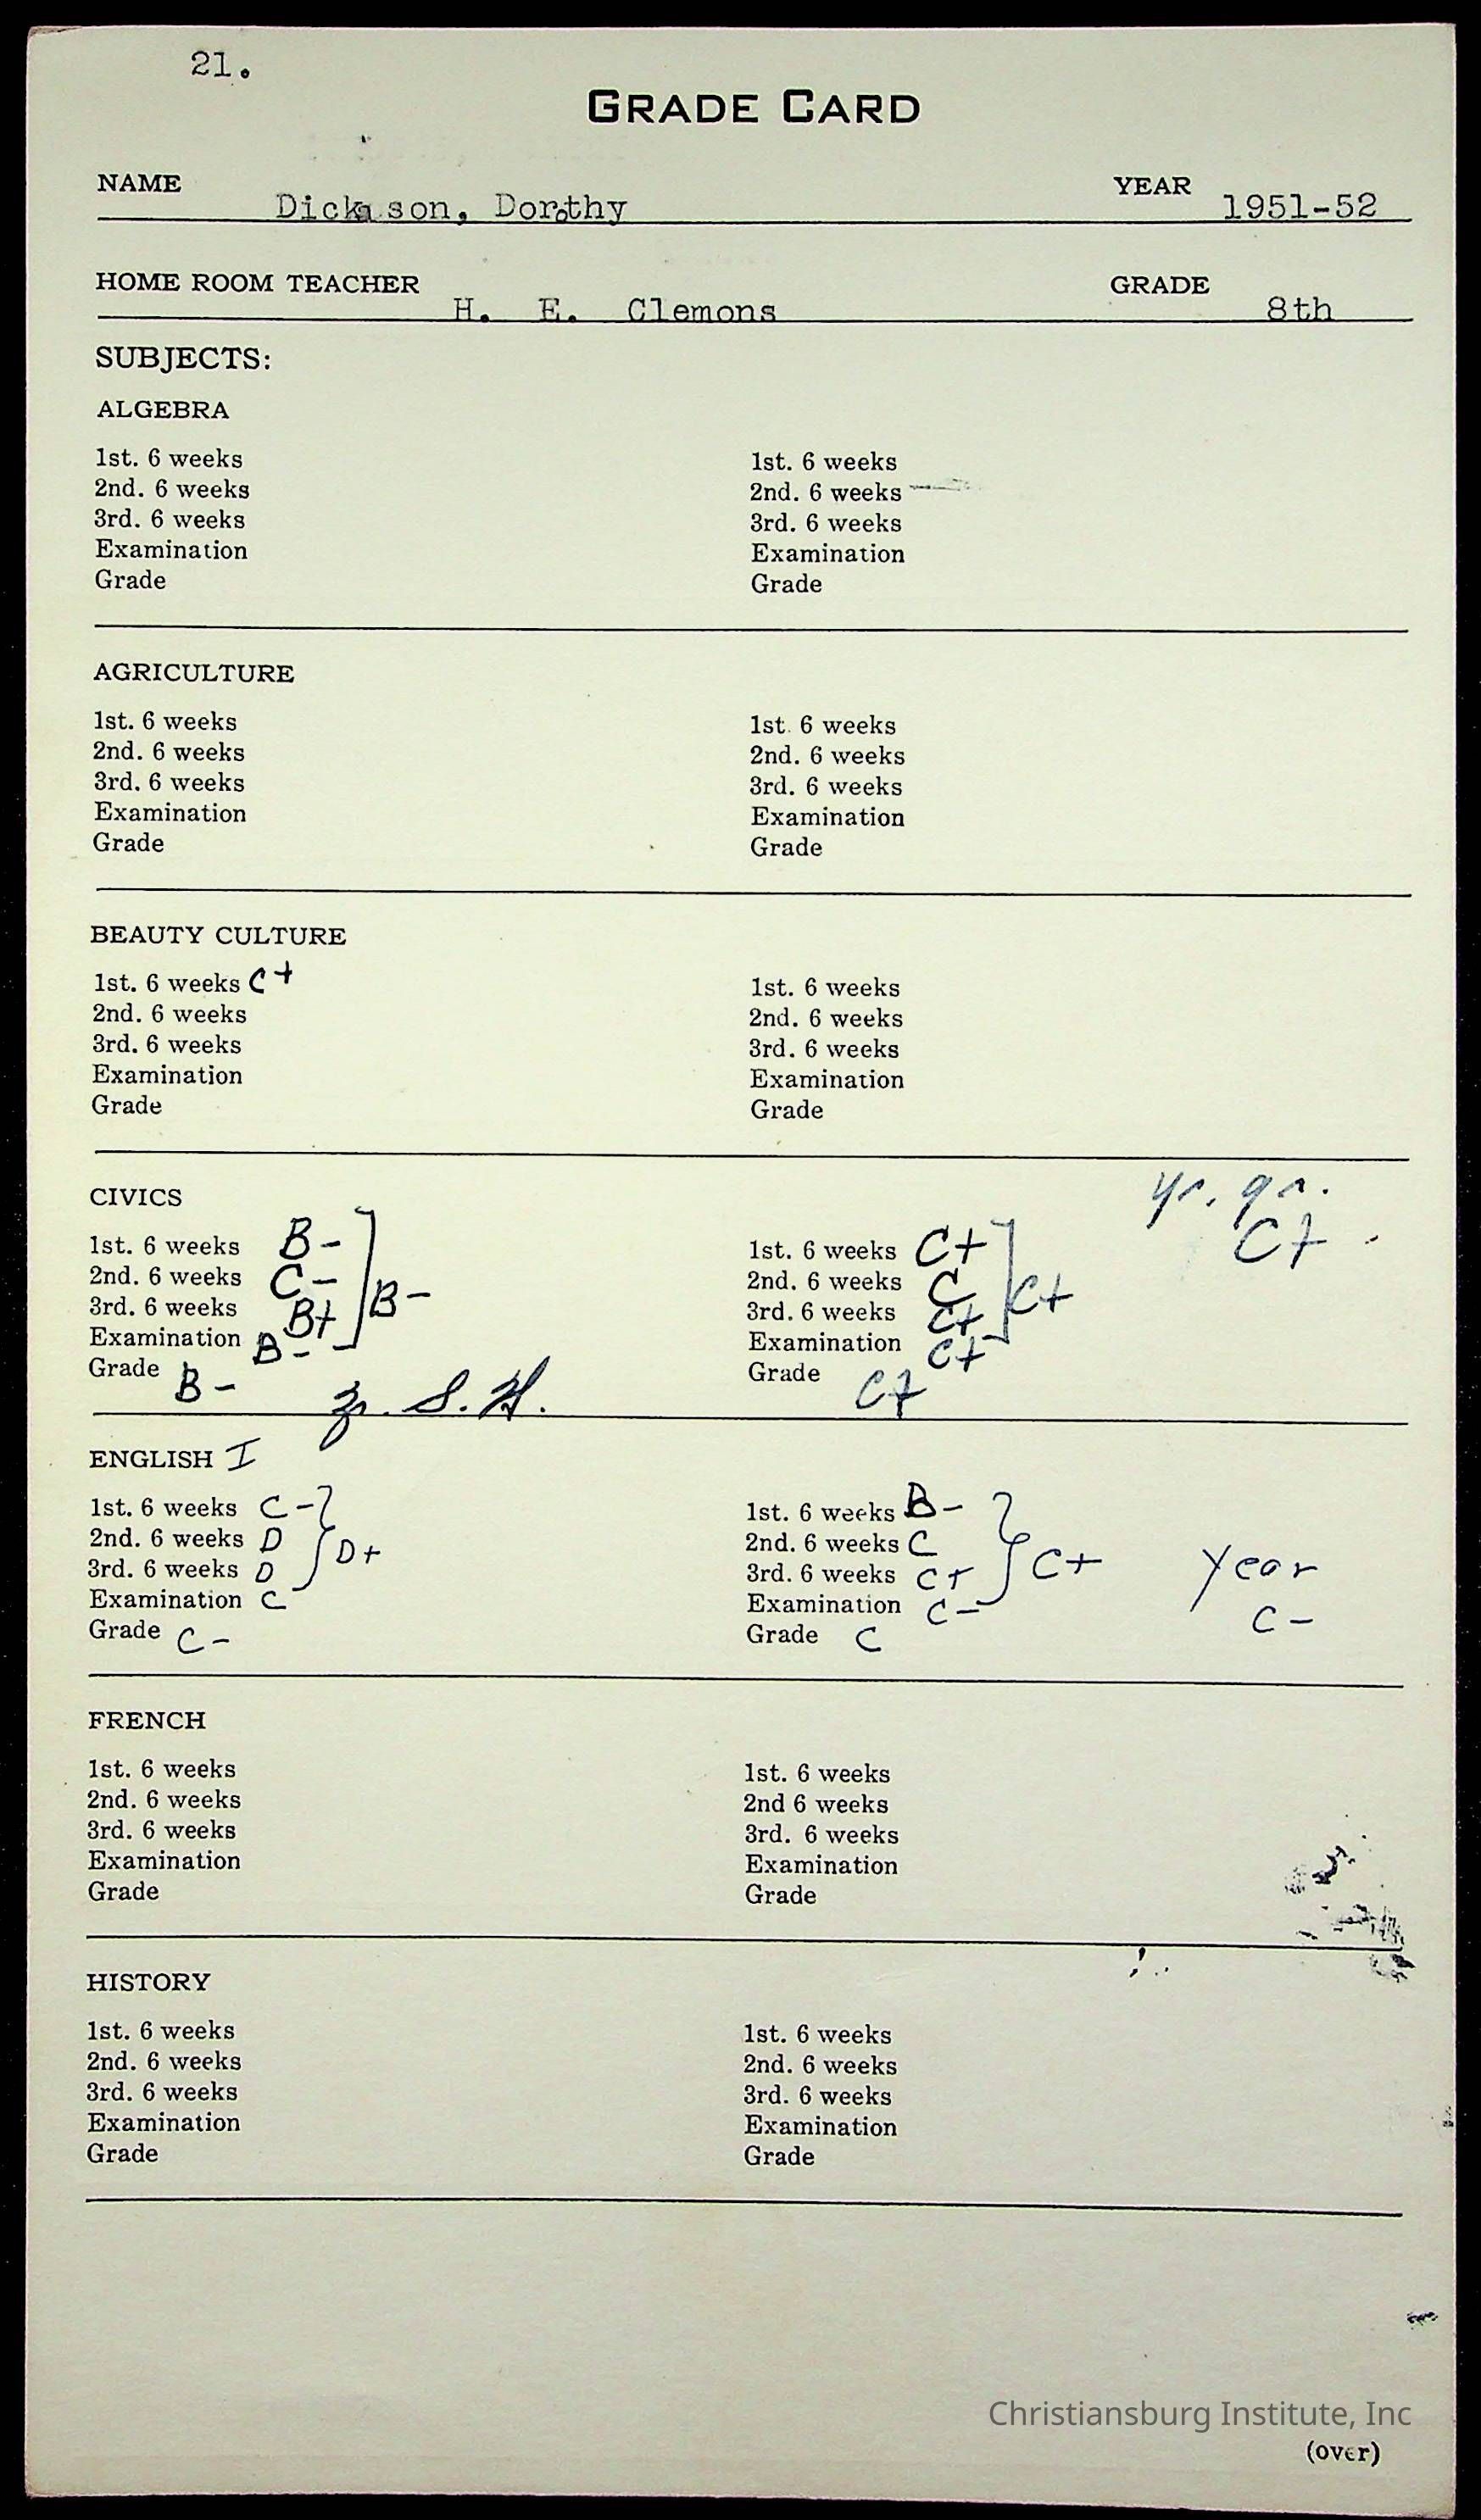 21.
GRADE CARD
NAME Dickason, Dorothy YEAR 1951-52
HOME ROOM TEACHER H. E. Clemons GRADE 8th
SUBJECTS:
ALGEBRA
1st. 6 weeks 1st. 6 weeks
2nd. 6 weeks 2nd. 6 weeks
3rd. 6 weeks 3rd. 6 weeks
Examination Examination
Grade Grade
AGRICULTURE
1st. 6 weeks 1st. 6 weeks
2nd. 6 weeks 2nd. 6 weeks
3rd. 6 weeks 3rd. 6 weeks
Examination Examination
Grade Grade
BEAUTY CULTURE
1st. 6 weeks C+ 1st. 6 weeks
2nd. 6 weeks 2nd. 6 weeks
3rd. 6 weeks 3rd. 6 weeks
Examination Examination
Grade Grade
CIVICS yr. gr.
1st. 6 weeks B- 1st. 6 weeks C+ C+
2nd. 6 weeks C- 2nd. 6 weeks C
3rd. 6 weeks B+ B- 3rd. 6 weeks C+ C+
Examination B- Examination C+
Grade B- S. H. Grade C+
ENGLISH I
1st. 6 weeks C- 1st. 6 weeks B-
2nd. 6 weeks D D+ 2nd. 6 weeks C
3rd. 6 weeks D 3rd. 6 weeks C+ C+ Year
Examination C Examination C- C-
Grade C- Grade C
FRENCH
1st. 6 weeks 1st. 6 weeks
2nd. 6 weeks 2nd 6 weeks
3rd. 6 weeks 3rd. 6 weeks
Examination Examination
Grade Grade
HISTORY
1st. 6 weeks 1st. 6 weeks
2nd. 6 weeks 2nd. 6 weeks
3rd. 6 weeks 3rd. 6 weeks
Examination Examination
Grade Grade
Christiansburg Institute, Inc
(over)